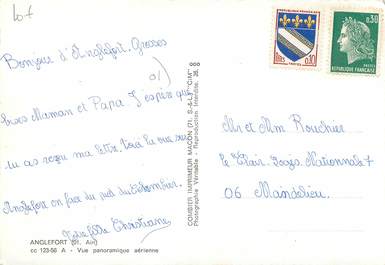 lot
Bonjour d'Anglefort. Grosses
bises Maman et Papa J'espère que
tu as reçu ma lettre. Voici la vue sur
Anglefort en face du pied du Colombier.
Christiane
ANGLEFORT (St. Ain)
cc 123-56 A - Vue panoramique aérienne
COMBIER IMPRIMEUR MACON (71. S.-&-L.) "CIM"
Photographie Véritable - Reproduction Interdite.
REPUBLIQUE FRANÇAISE
0,10
TROYES
0,30
POSTES
REPUBLIQUE FRANÇAISE
Mr et Mm Rouchier
Le Clair Logis. Nationale 7
06 Mandelieu